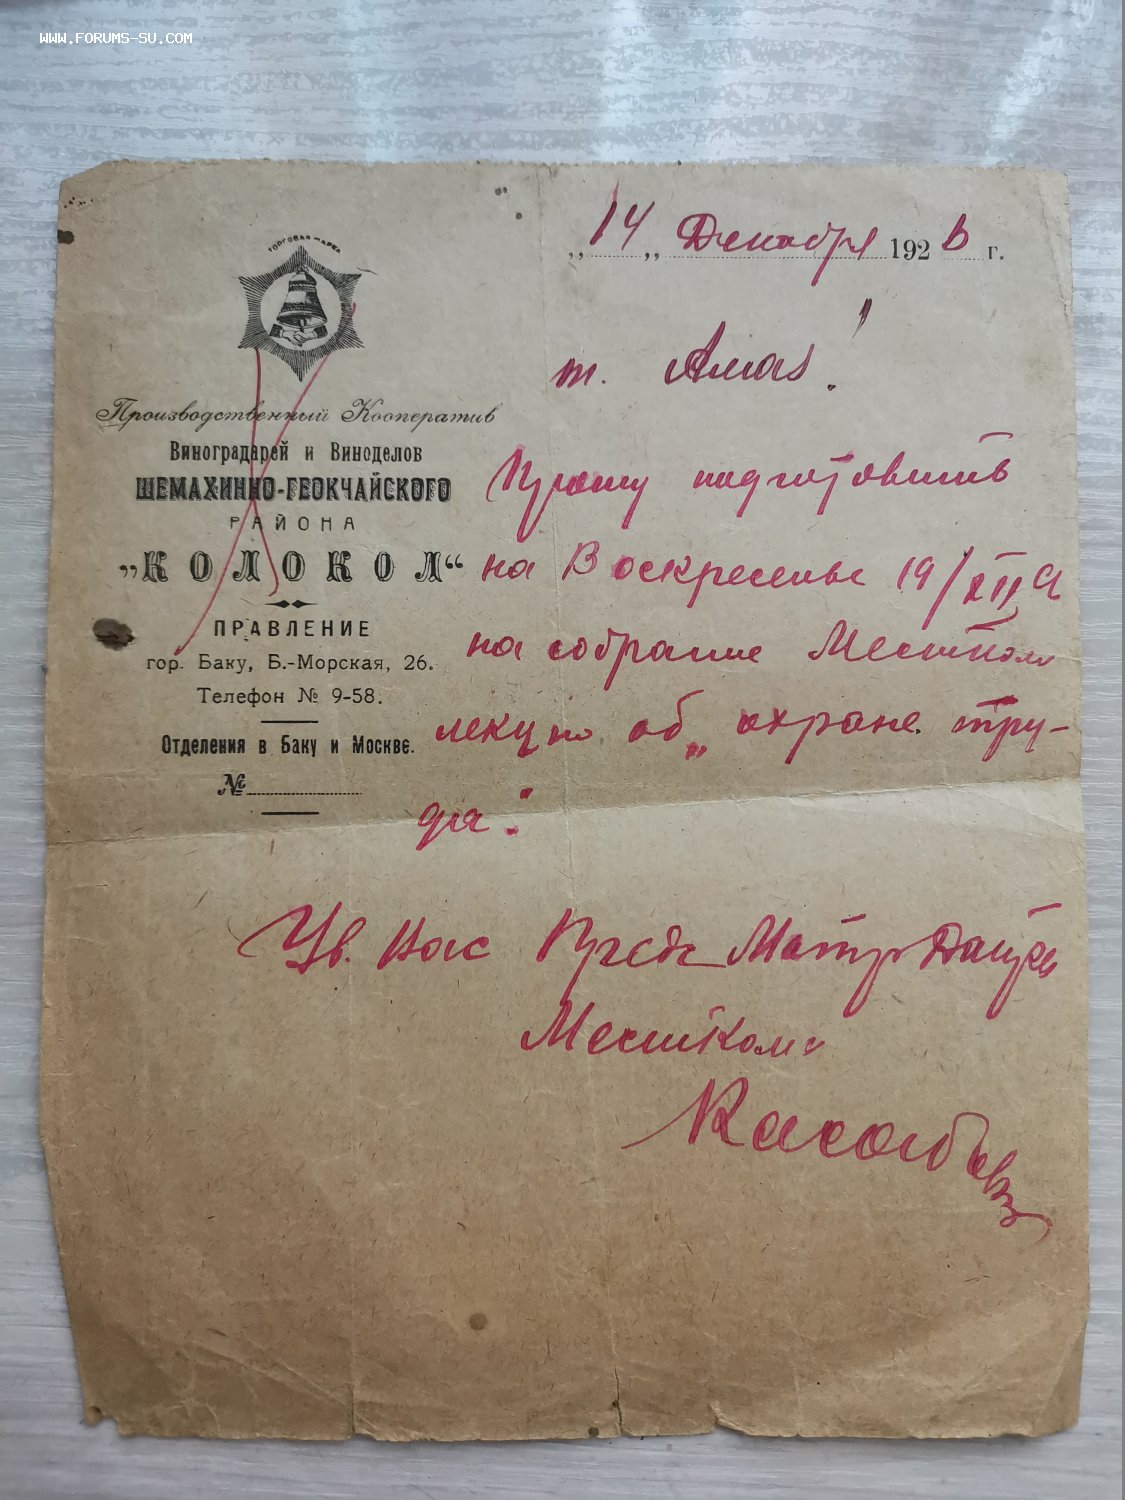 WWW.FORUMS-SU.COM
„ 14 „ Декабря 1926 г.
ТОРГОВАЯ МАРКА
т.
Производственный Кооператив
Виноградарей и Виноделов
ШЕМАХИННО-ГЕОКЧАЙСКОГО
РАЙОНА
„КОЛОКОЛ“
ПРАВЛЕНИЕ
гор. Баку, Б.-Морская, 26.
Телефон № 9-58.
Отделения в Баку и Москве.
№
Прошу подготовить
на Воскресенье 19/XII
на собрание Месткома
лекцию об „охране тру-
да“.
Ув. Вас Предс
Месткома